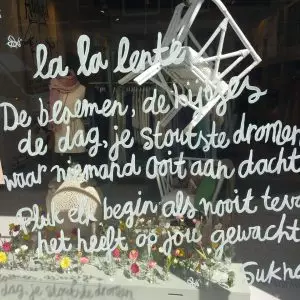 la la lente
De bloemen, de kusjes
de dag, je stoutste dromen
waar niemand ooit aan dacht
Pluk elk begin als nooit tevo
het heeft op jou gewacht
Sukha